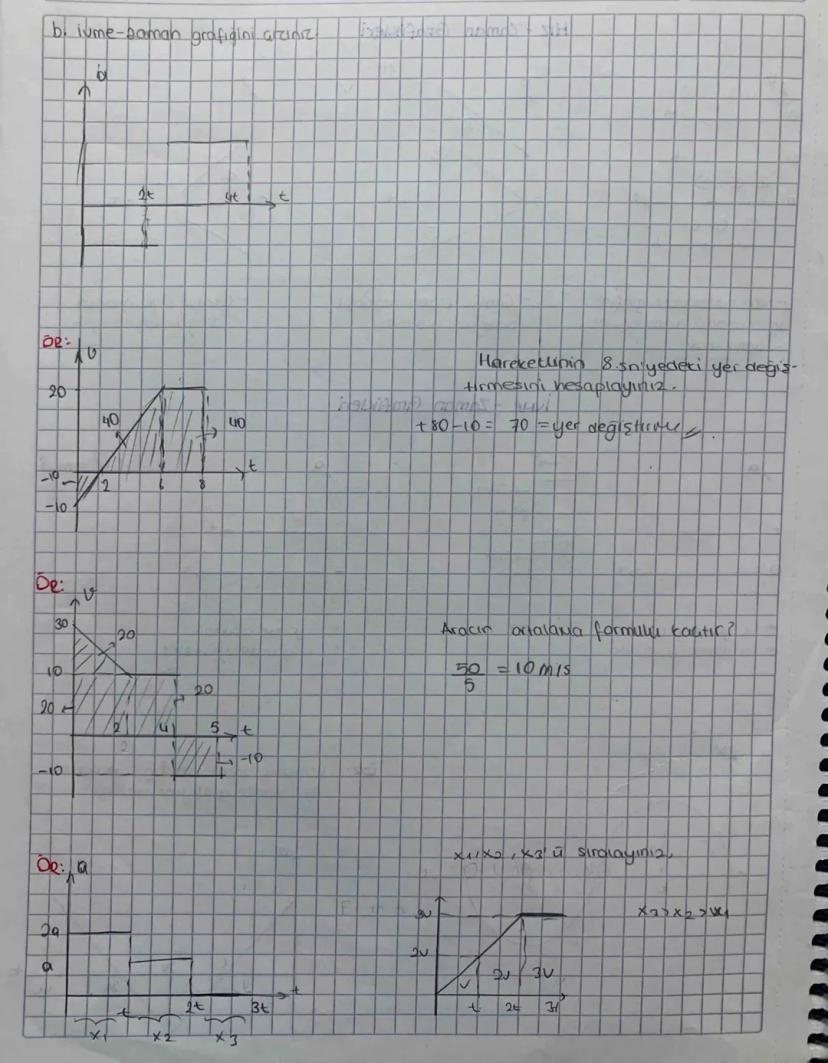 b. ivme-zaman grafiğini çiziniz.
a
2t 4t t
ÖR:
v
20
40
40
-10
2 6 8 t
-10
Hareketlinin 8.sn'yedeki yer değiş-
tirmesini hesaplayınız.
+80-10= 70 = yer değiştirme
ÖR:
v
30
20
10
20
20
2 4 5 t
-10
-10
Aracın ortalama formulu kaçtır?
50/5 = 10 m/s
ÖR:
a
2a
a
t 2t 3t t
x1 x2 x3
x1, x2, x3'ü sıralayınız.
3v
2v
v 2v 3v
t 2t 3t
x3>x2>x1